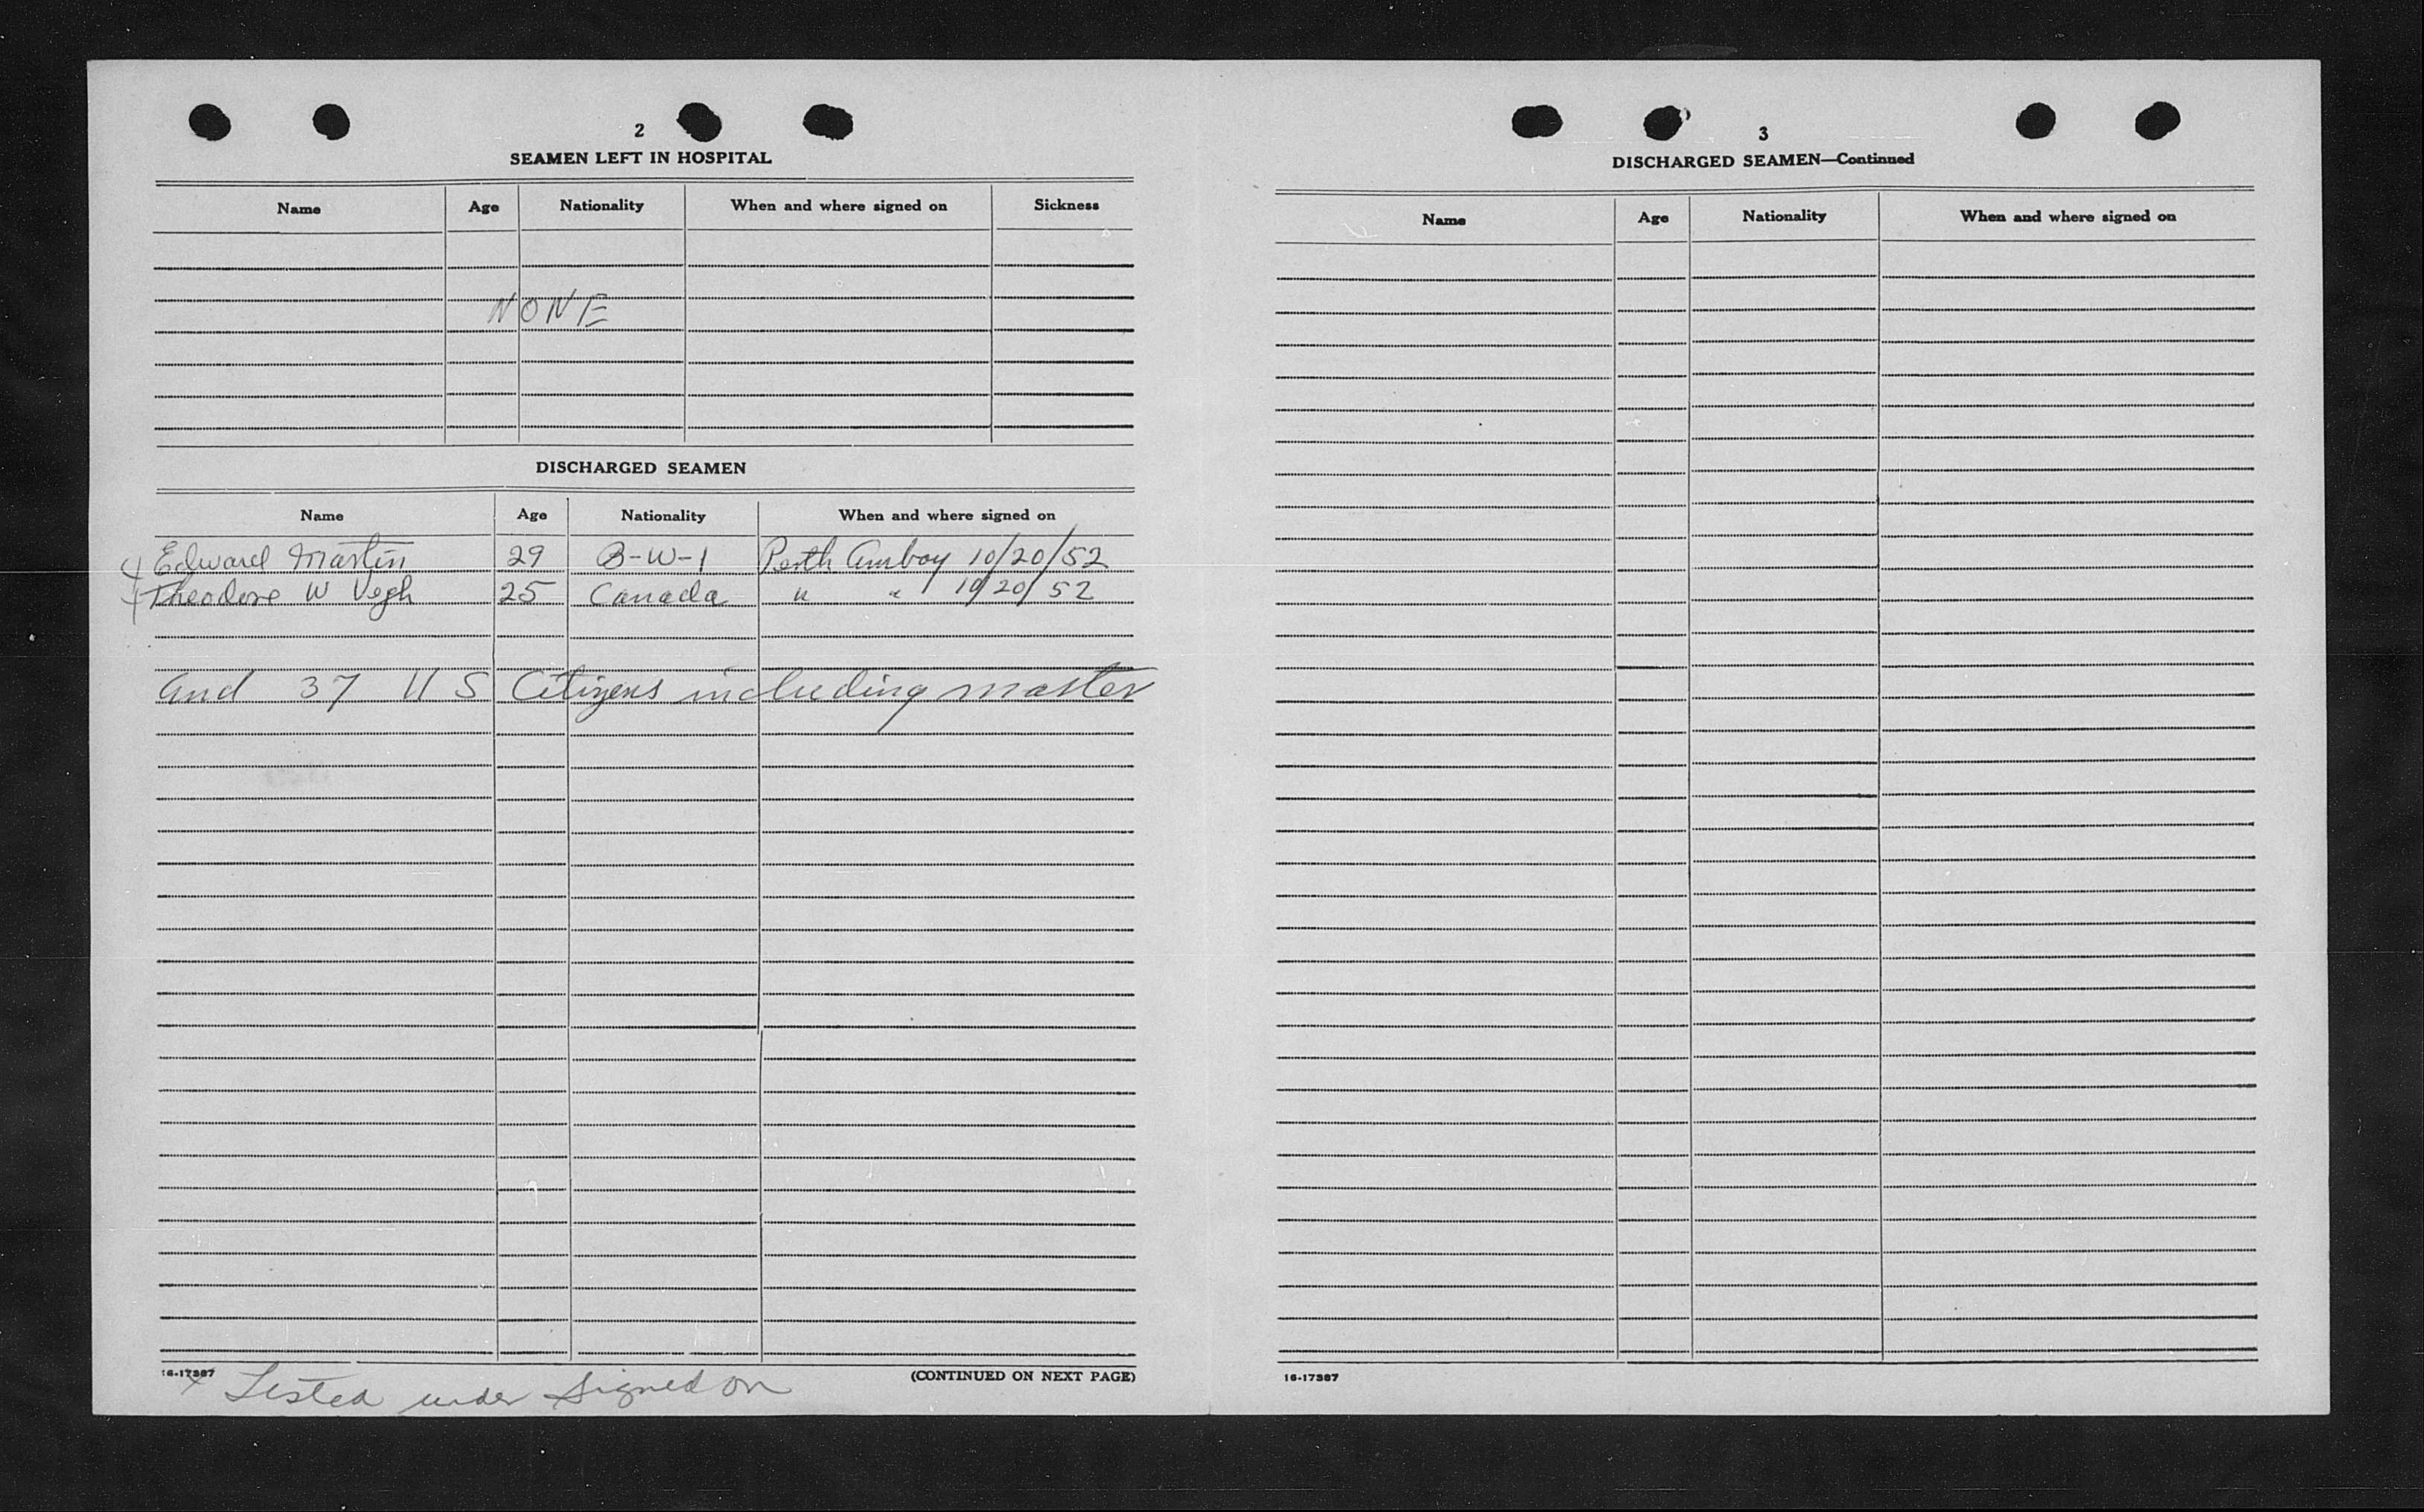 2
SEAMEN LEFT IN HOSPITAL
Name Age Nationality When and where signed on Sickness
NONE
DISCHARGED SEAMEN
Name Age Nationality When and where signed on
Edward Martin 29 B-W-I Perth Amboy 10/20/52
Theodore W Vegh 25 Canada " " 10/20/52
and 37 U S Citizens including master
16-17387 (CONTINUED ON NEXT PAGE)
x Listed under Signed on
3
DISCHARGED SEAMEN—Continued
Name Age Nationality When and where signed on
16-17387